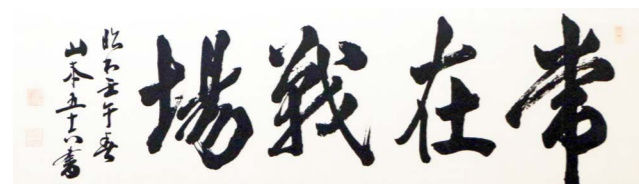 常在戦場
昭和壬午春
山本五十六書